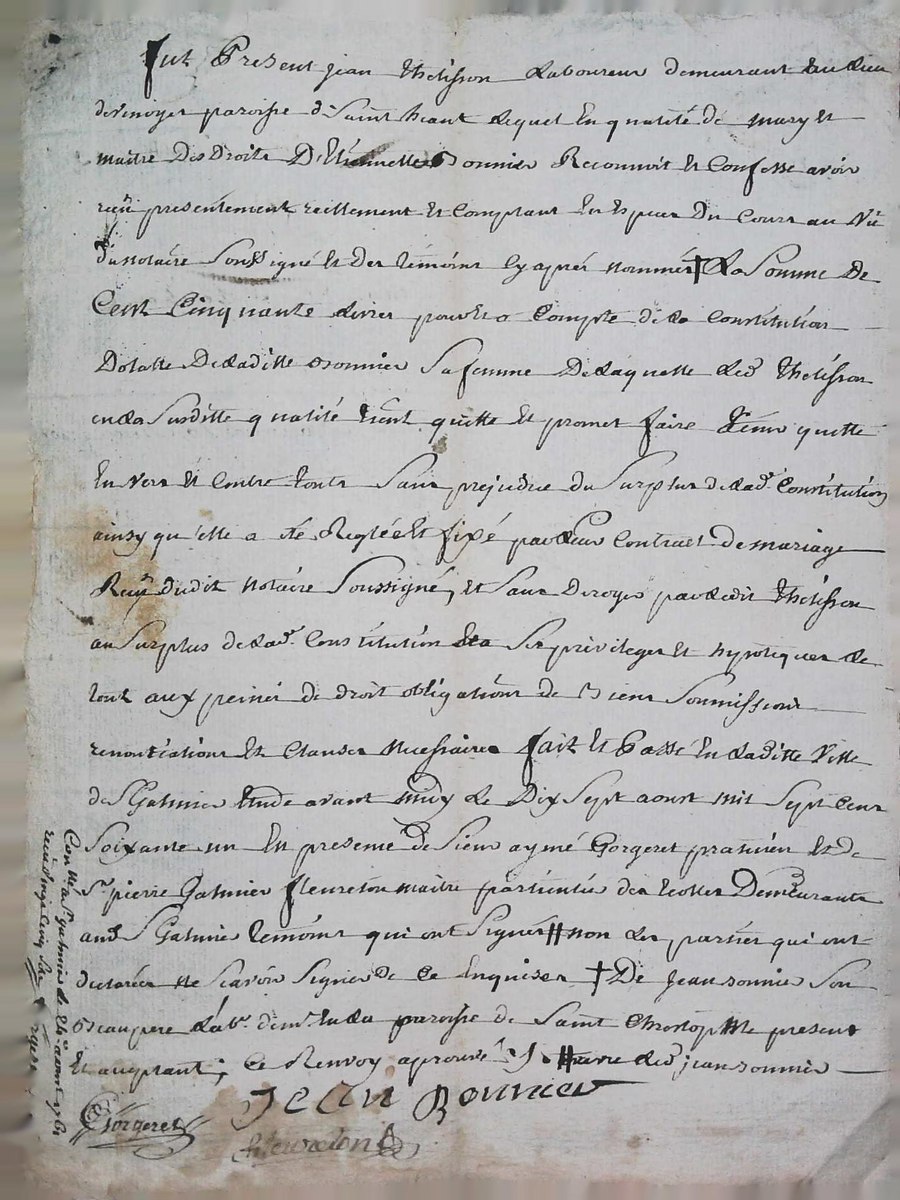 fut Present jean thelisson Laboureur demeurant au Lieu
de vinoyer paroisse de Saint heant Lequel En qualité de mary Et
maitre Des Droits D'Etiennette Bonnier Reconnoit Et Confesse avoir
reçu presentement reellement Et Comptant En Especes Du Cours au Vû
du notaire Soussigné Et Des temoins Cy aprés nommés † La Somme De
Cent Cinquante Livres pour Et a Compte de La Constitution
Dotalle De Laditte Bonnier Sa femme De Laquelle Led. thelisson
en La Susditte qualité tient quitte Et promet faire tenir quitte
Envers Et Contre touts Sans prejudice du Surplus de Lad. Constitution
ainsy qu'elle a été Reglée Et fixé par Leur Contract de mariage
Reçu dudit notaire Soussigné, et Sans Deroger par Ledit thelisson
au Surplus de Lad. Constitution Ses privileges Et hypoteques Le
tout aux peines de droit obligations de Biens Soumissions
renontiations Et Clauses Necessaires fait Et Passé En Laditte Ville
de St Galmier Etude avant midy Le Dix Sept aoust mil Sept Cent
Soixante un En presence de Sieur aymé Gorgeret praticien Et de
Sr. pierre Galmier fleureton maitre particulier des Ecolles Demeurants
aud. St Galmier temoins qui ont Signés # non Les parties qui ont
declarées ne Scavoir Signer de Ce Enquises † De Jean Bonnier Son
Beaupere Lab.r dem.t En La paroisse de Saint Christophle present
Et acceptant; Ce Renvoy aprouvé # avec Led. jean Bonnier
Jean Bonnier
Gorgeret
fleureton
Con.llé a St. galmier Le 24.e aoust 1761
reçu